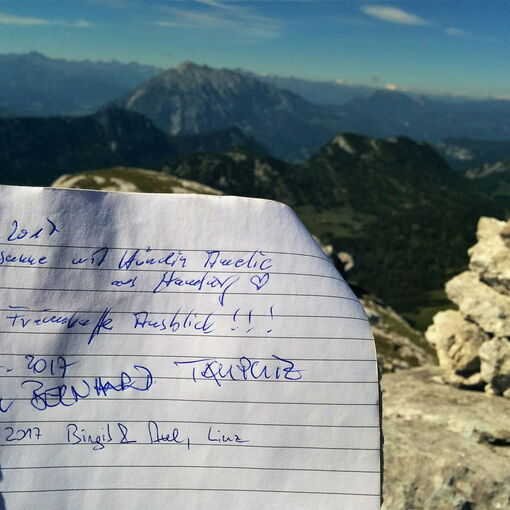 2017
mit Hündin Amelie
aus Hamburg ♡
Traumhafte Ausblick!!!
. 2017
BERNHARD TAUPLITZ
2017 Birgit & Axel, Linz